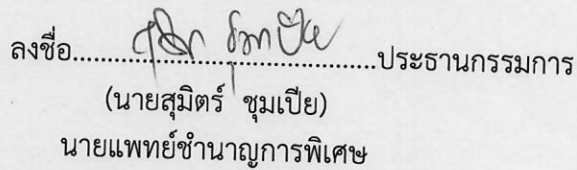 ลงชื่อ..........................................ประธานกรรมการ
(นายสุมิตร์ ชุมเปีย)
นายแพทย์ชำนาญการพิเศษ